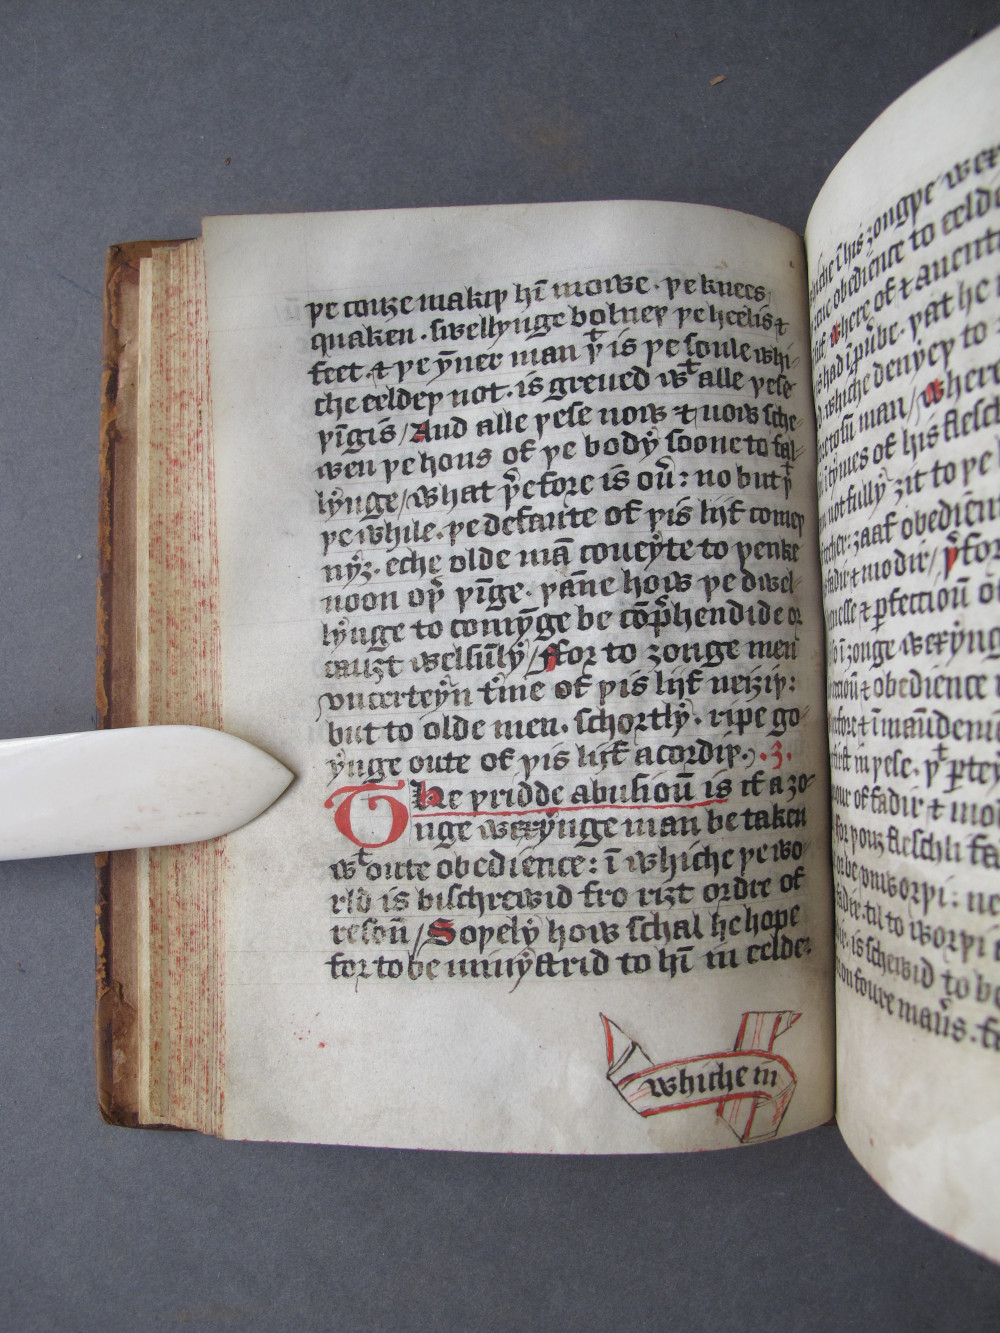 þe couȝe makiþ hī · þe knees
quaken · swellynge bolneþ þe heelis ⁊
feet · ⁊ þe ẏner man þᵗ is þe soule whi-
che eeldeþ not · is greued wᵗ alle þese
þīgis / And alle þese now ⁊ now sche-
wen þe hous of þe bodẏ soone to fal-
lẏnge / what þ̉efore is ou̾ : no but þᵗ
þe while · þe defaute of þis lijf comeþ
nẏȝ · eche olde mā coueẏte to þenke
noon oþ̉ þīge · þāne how þe dwel-
lẏnge to comẏnge be cōp̄hendide or
cauȝt welsūlẏ / ffor to ȝonge men
vncerteẏn tẏme of þis lijf neiȝiþ :
but to olde men · schortlẏ · ripe go-
ẏnge oute of þis lijf acordiþ · .3.
The þridde abusioū is if a ȝo-
nge wexẏnge man be taken
wᵗoute obedience : ī whiche þe wo-
rld is bischrewid fro riȝt ordre of
resoū / Soþelẏ how schal he hope
for to be mẏnẏstrid to hī in eelde ·
whiche in
ȝongþe wex
obedience to eelde
here of ⁊ auenti
þat he
whiche denẏeþ to
man / where
tẏmes of his flesch
not fullẏ ȝit to þe
ȝaaf obedien
fadir ⁊ modir / þ̉for
⁊ ꝑfectioū
ȝonge wexẏng
⁊ obedience
of fadir ⁊ mo
for ȝour fleschli fa
be vnworþi : ne
til to worþi
is schewid to be
foure man̄s · f